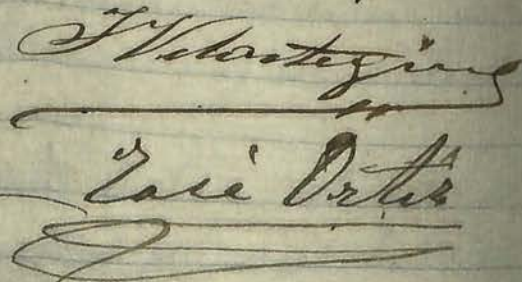 J Velastegui
José Ortiz